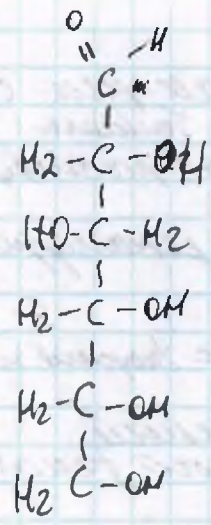 O
H
C
H2-C-OH
HO-C-H2
H2-C-OH
H2-C-OH
H2 C-OH